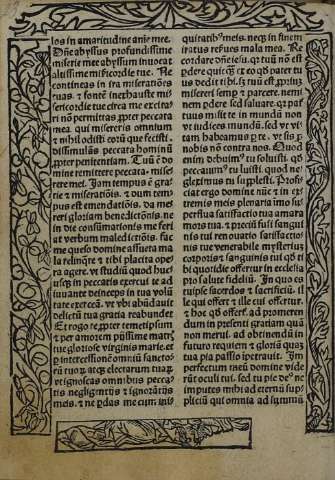 los in amaritudine anime mee.
Dñe abyssus profundissime
miserie mee abyssum inuocat
altissime misericordie tue. Ne
contineas in ira miseratiões
tuas: et fontē inexhauste mi-
sericordie tue circa me excita-
ri nō permittas propter peccata
mea. qui misereris omnium
et nihil odisti eorū que fecisti.
dissimulās peccata hominū
propter penitentiam. Tuū ē do-
mine remittere peccata. mise-
rere mei. Jam tempus ē gra-
tie et miseratiõis. et dum tem-
pus est emendatiõis. da me-
reri gloriam benedictõnis. ne
in die consūmationis me feri-
at verbum maledictõis. fac
me queso domine assueta ma-
la relinqre et tibi placita opera
agere. vt studiū quod huc-
usque in peccatis exercui te ad-
iuuante deinceps in tua volū-
tate exerceā. vt vbi abūdauit
delictū tua gratia reabundet
Et rogo te propter temetipsum
et per amorem piissime matris
tue gloriose virginis marie. et
per intercessionē omniū sancto-
rū tuorū atque electarum tuarū
vt ignoscas omnibus pecca-
tis negligentiis et ignorātiis
meis. et ne perdas me cum ini-
quitatibus meis. neque in finem
iratus reserues mala mea. Re-
cordare dñe iesu. qr tuū nō est
perdere quicquā ex eo quod pater tu-
us dedit tibi. sed tuū est proprium
misereri semper et parcere. nemi-
nem perdere sed saluare. qr pater
tuus misit te in mundū non
vt iudices mundū. sed vt vi-
tam habeamus per te. vt sis pro
nobis nō contra nos. Quod
enim debuimus tu soluisti. quod
peccauimus tu luisti. quod ne-
gleximus tu suplesti. Profi-
ciat ergo domine nūc et in ex-
tremis meis plenaria imo su-
perflua satisfactio tua amara
mors tua. et preciosi fusi sangui-
nis tui
ris tue venerabile mysterium
corporis et sanguinis tui quod ti-
bi quotidie offertur in ecclesia
pro salute fidelium. In quo es
tuipse sacerdos et sacrificiū. il-
le qui offert et ille cui offertur.
et hoc quod offertur. ad promeren-
dum in presenti gratiam quā
non merui. ad obtinendū in
futuro requiem et gloriā quam
tua pia passio impetrauit. Im-
perfectum meū domine vide-
rūt oculi tui. sed tu pie deus ne
imputes mihi ad eternū sup-
pliciū qui omnia ad summū